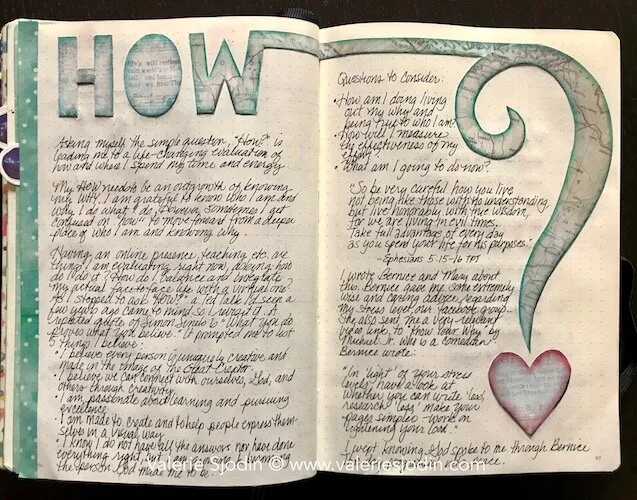 HOW
Asking myself the simple question, "How?" is
leading me to a life-changing evaluation of
how and where I spend my time and energy.
My How needs to be an outgrowth of knowing
my WHY. I am grateful to know who I am and
why I do what I do. However, sometimes I get
confused on "How" to move forward from a deeper
place of who I am and knowing why.
Having an online presence, teaching etc. are
things I am evaluating right now, asking how
do I do it? How do I balance and integrate
my actual face to face life with a virtual one?
As I stopped to ask "How?" a Ted Talk I'd seen a
few years ago came to mind so I watched it. A
repeated quote of Simon Sinek is "What you do
proves what you believe." It prompted me to list
5 things I believe:
• I believe every person is uniquely creative and
made in the image of the Great Creator.
• I believe we can connect with ourselves, God, and
others through creativity.
• I am passionate about learning and pursuing
excellence.
• I am made to create and to help people express them-
selves in a visual way.
• I know I do not have all the answers nor have done
everything right, but I am on a becoming
the person God made me to be.
Questions to Consider:
• How am I doing living
out my why and
being true to who I am?
• How will I measure
the effectiveness of my
effort?
• What am I going to do now?
"So be very careful how you live
not being like those with no understanding,
but live honorably with true wisdom,
for we are living in evil times.
Take full advantage of every day
as you spend your life for his purposes."
-Ephesians 5:15-16 TPT
I wrote Bernice and Mary about
this. Bernice gave me some extremely
wise and caring advice regarding
my stress level, our facebook group...
She also sent me a very relevant
video link, to "Know Your Why" by
Michael Jr. who is a comedian.
Bernice wrote:
"In light of your stress
levels have a look at
whether you can write less,
research less, make your
pages simpler - work on
lightening your load."
I wept knowing God spoke to me through Bernice
Valerie Sjodin © www.valeriesjodin.com